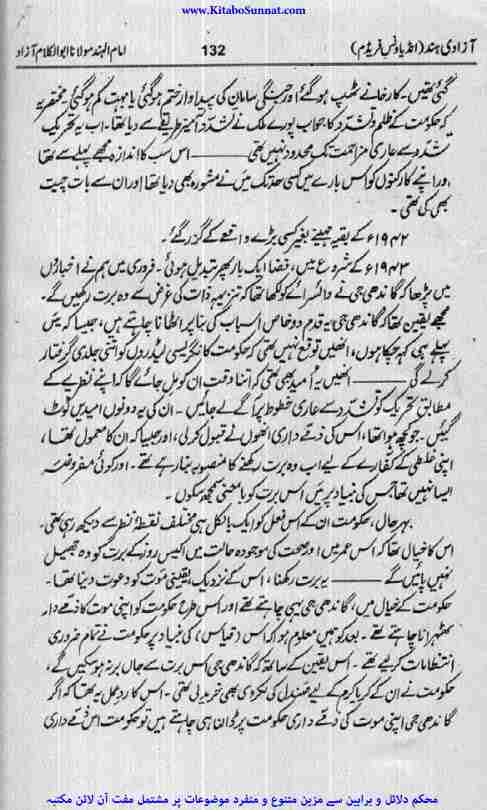 www.KitaboSunnat.com
آزادی ہند (انڈیا ونس فریڈم) 132 امام الہند مولانا ابوالکلام آزاد
گئی تھیں۔ کارخانے ٹھپ ہو گئے اور جنگی سامان کی پیداوار ختم ہو گئی یا بہت کم ہو گئی۔ مختصر یہ
کہ حکومت کے ظلم و تشدد کا جواب پورے ملک نے تشدد آمیز طریقے سے دیا تھا۔ اب یہ تحریک
تشدد سے عاری مزاحمت تک محدود نہیں تھی ——— اس سب کا اندازہ مجھے پہلے سے تھا
اور اپنے کارکنوں کو اس بارے میں کسی حد تک میں نے مشورہ بھی دیا تھا اور ان سے بات چیت
بھی کی تھی۔
۱۹۴۲ء کے بقیہ مہینے بغیر کسی بڑے واقعے کے گزر گئے۔
۱۹۴۳ء کے شروع میں، فضا ایک بار پھر تبدیل ہوئی۔ فروری میں ہم نے اخباروں
میں پڑھا کہ گاندھی جی نے وائسرائے کو لکھا تھا کہ تنزیہہ ذات کی غرض سے وہ برت رکھیں گے۔
مجھے یقین تھا کہ گاندھی جی یہ قدم دو خاص اسباب کی بنا پر اٹھانا چاہتے ہیں، جیسا کہ میں
پہلے ہی کہہ چکا ہوں، انھیں توقع نہیں تھی کہ حکومت کانگریسی لیڈروں کو اتنی جلدی گرفتار
کر لے گی ——— انھیں یہ امید بھی تھی کہ اتنا وقت ان کو مل جائے گا کہ اپنے نظریے کے
مطابق تحریک کو تشدد سے عاری خطوط پر آگے لے جائیں۔ ان کی یہ دونوں امیدیں ٹوٹ
گئیں۔ جو کچھ ہوا تھا، اس کی ذمے داری انھوں نے قبول کر لی، اور جیسا کہ ان کا معمول تھا،
اپنی غلطی کے کفارے کے لیے اب وہ برت رکھنے کا منصوبہ بنا رہے تھے۔ اور کوئی مفروضہ
ایسا نہیں تھا جس کی بنیاد پر میں اس برت کو بامعنی سمجھ سکوں۔
بہرحال، حکومت ان کے اس فعل کو ایک بالکل ہی مختلف نقطۂ نظر سے دیکھ رہی تھی۔
اس کا خیال تھا کہ اس عمر میں اور صحت کی موجودہ حالت میں اکیس روز کے برت کو وہ جھیل
نہیں پائیں گے ——— یہ برت رکھنا، اس کے نزدیک یقینی موت کو دعوت دینا تھا۔
حکومت کے خیال میں، گاندھی جی یہی چاہتے تھے اور اس طرح حکومت کو اپنی موت کا ذمے دار
ٹھہرانا چاہتے تھے۔ بعد کو ہمیں معلوم ہوا کہ اس (قیاس) کی بنیاد پر حکومت نے تمام ضروری
انتظامات کر لیے تھے۔ اس یقین کے ساتھ کہ گاندھی جی اس برت سے جاں بر نہ ہو سکیں گے،
حکومت نے ان کے کریا کرم کے لیے صندل کی لکڑی بھی خرید لی تھی۔ اس کا ردِ عمل یہ تھا کہ اگر
گاندھی جی اپنی موت کی ذمے داری حکومت پر ڈالنا ہی چاہتے ہیں تو حکومت اس ذمے داری
محکم دلائل و براہین سے مزین متنوع و منفرد موضوعات پر مشتمل مفت آن لائن مکتبہ